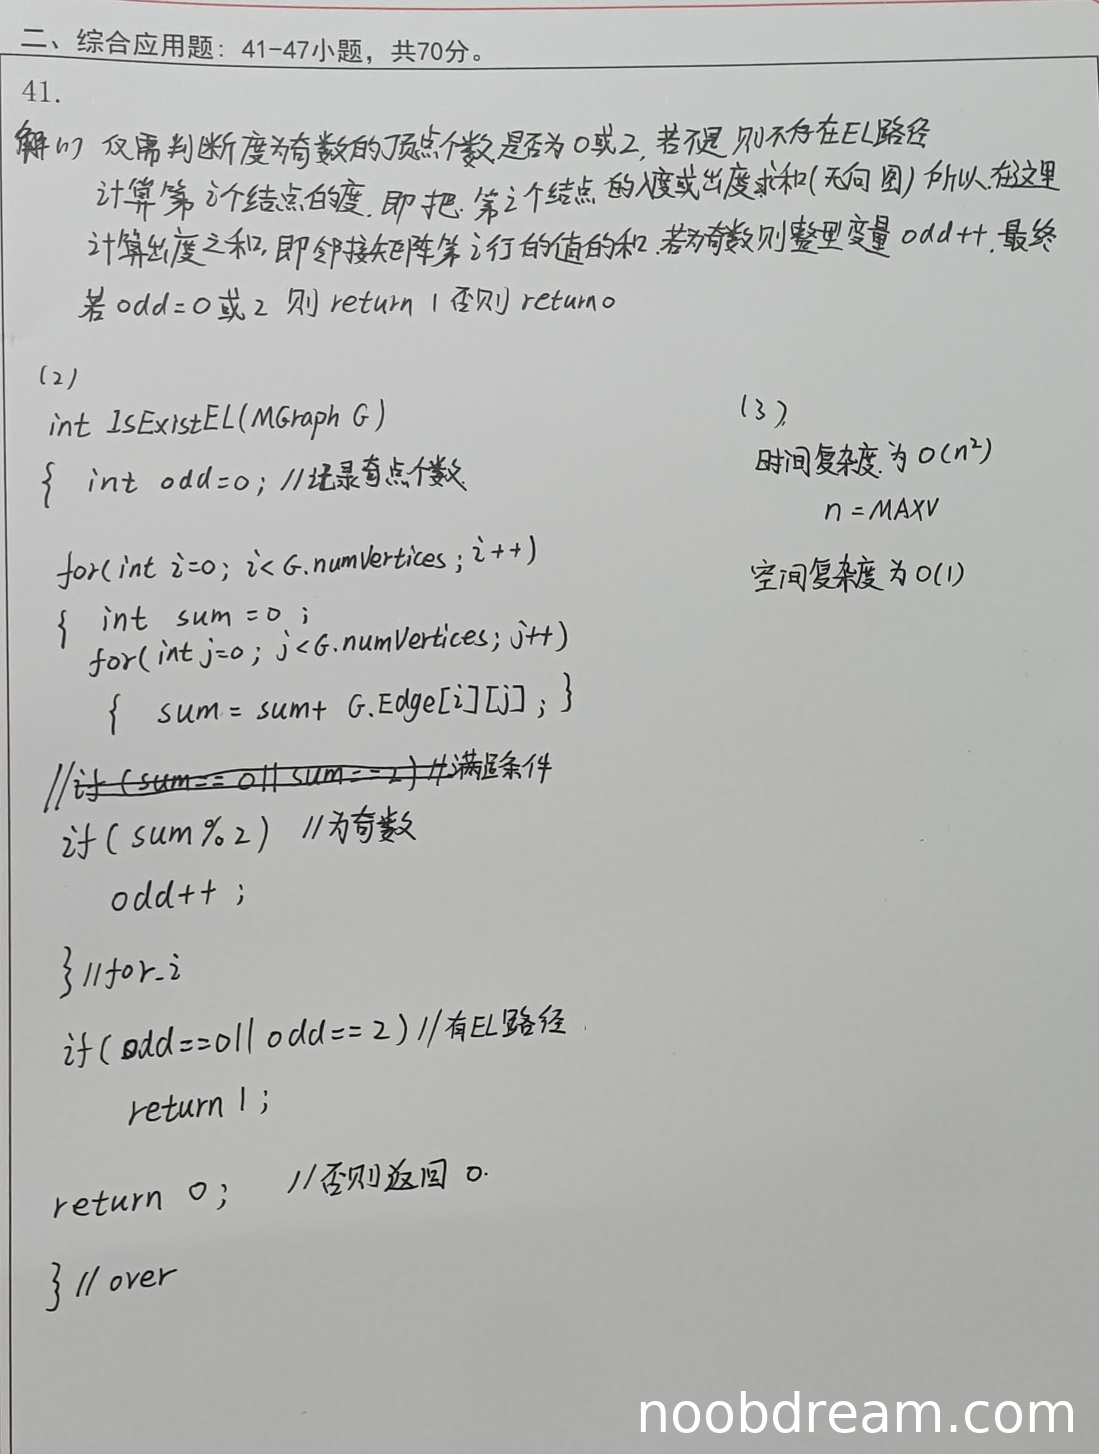 二、综合应用题：41-47小题，共70分。
41.
解(1) 仅需判断度为奇数的顶点个数是否为0或2，若不是则不存在EL路径
计算第i个结点的度，即把第i个结点的入度或出度求和(无向图)所以在这里
计算出度之和，即邻接矩阵第i行的值的和.若为奇数则整型变量odd++，最终
若odd=0或2 则return 1 否则return 0
(2)
int IsExistEL(MGraph G)
{ int odd=0; //记录奇点个数
for(int i=0; i<G.numVertices; i++)
{ int sum=0;
for(int j=0; j<G.numVertices; j++)
{ sum=sum+ G.Edge[i][j]; }
//if(sum==0||sum==2)//满足条件
if(sum%2) //为奇数
odd++;
}//for_i
if(odd==0||odd==2)//有EL路径
return 1;
return 0; //否则返回0.
}//over
(3).
时间复杂度为O(n²)
n=MAXV
空间复杂度为O(1)
noobdream.com